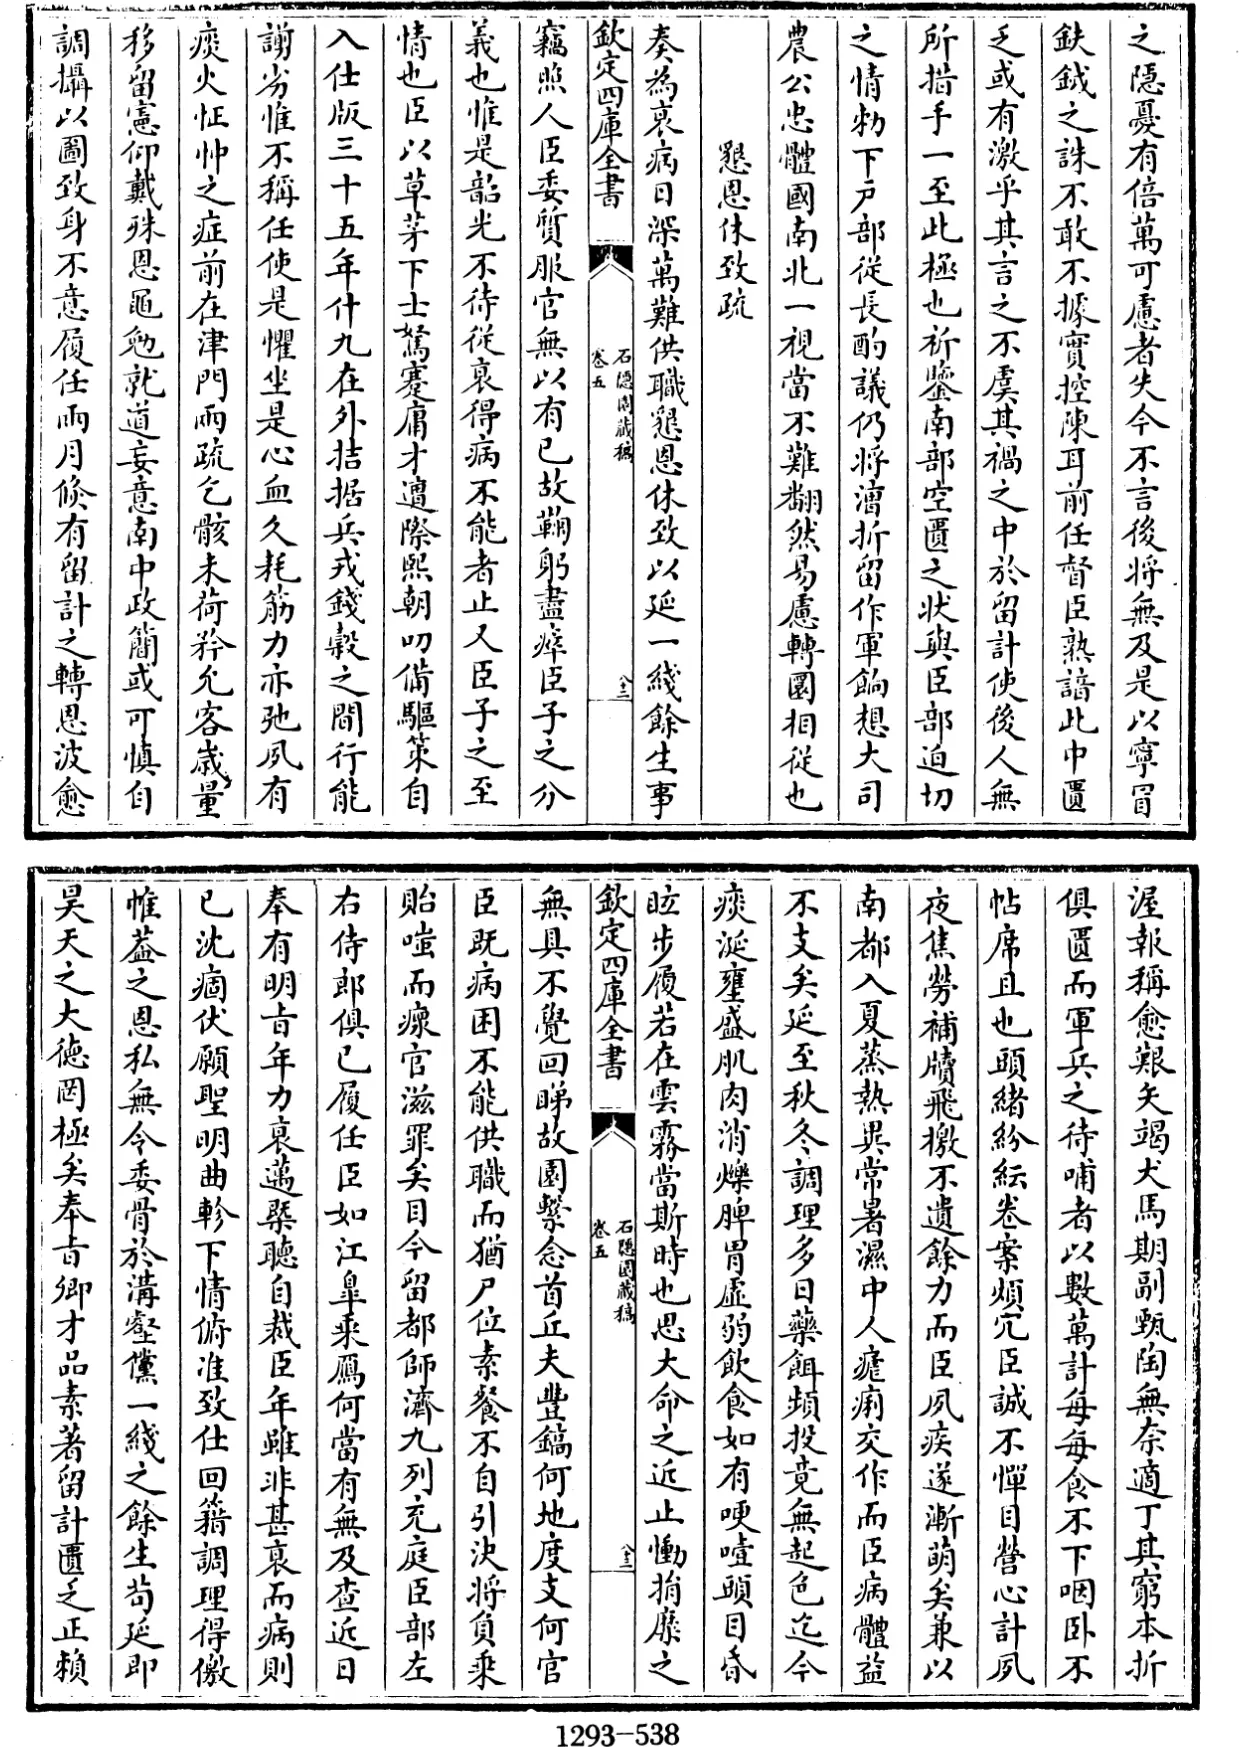 之隱憂有倍萬可慮者失今不言後將無及是以寧冒
鈇鉞之誅不敢不據實控陳耳前任督臣熟諳此中匱
乏或有激乎其言之不虞其禍之中於留計使後人無
所措手一至此極也祈鑒南部空匱之狀與臣部迫切
之情勅下戶部從長酌議仍將漕折留作軍餉想大司
農公忠體國南北一視當不難翻然易慮轉圜相從也
懇恩休致疏
奏為衰病日深萬難供職懇恩休致以延一綫餘生事
欽定四庫全書
石隱園藏稿
卷五
八三
竊照人臣委質服官無以有己故鞠躬盡瘁臣子之分
義也惟是韶光不待從衰得病不能者止又臣子之至
情也臣以草茅下士駑蹇庸才遭際熙朝叨備驅策自
入仕版三十五年什九在外拮据兵戎錢穀之間行能
謭劣惟不稱任使是懼坐是心血久耗筋力亦弛夙有
痰火怔忡之症前在津門兩疏乞骸未荷矜允客歲量
移留憲仰戴殊恩黽勉就道妄意南中政簡或可慎自
調攝以圖致身不意履任兩月倐有留計之轉恩波愈
渥報稱愈艱矢竭犬馬期副甄陶無奈適丁其窮本折
俱匱而軍兵之待哺者以數萬計每每食不下咽卧不
帖席且也頭緒紛紜卷案煩宂臣誠不憚目營心計夙
夜焦勞補牘飛檄不遺餘力而臣夙疾遂漸萌矣兼以
南都入夏蒸熱異常暑濕中人瘧痢交作而臣病體益
不支矣延至秋冬調理多日藥餌頻投竟無起色迄今
痰涎壅盛肌肉消爍脾胃虛弱飲食如有哽噎頭目昏
眩步履若在雲霧當斯時也思大命之近止慟捐糜之
欽定四庫全書
石隱園藏稿
卷五
八三
無具不覺回睇故園縈念首丘夫豐鎬何地度支何官
臣既病困不能供職而猶尸位素餐不自引決將負乘
貽嗤而瘝官滋罪矣目今留都師濟九列充庭臣部左
右侍郎俱已履任臣如江皐乘鴈何當有無及查近日
奉有明旨年力衰邁槩聽自裁臣年雖非甚衰而病則
已沈痼伏願聖明曲軫下情俯准致仕回籍調理得徼
帷葢之恩私無令委骨於溝壑儻一綫之餘生苟延即
昊天之大德罔極矣奉旨卿才品素著留計匱乏正賴
1293-538